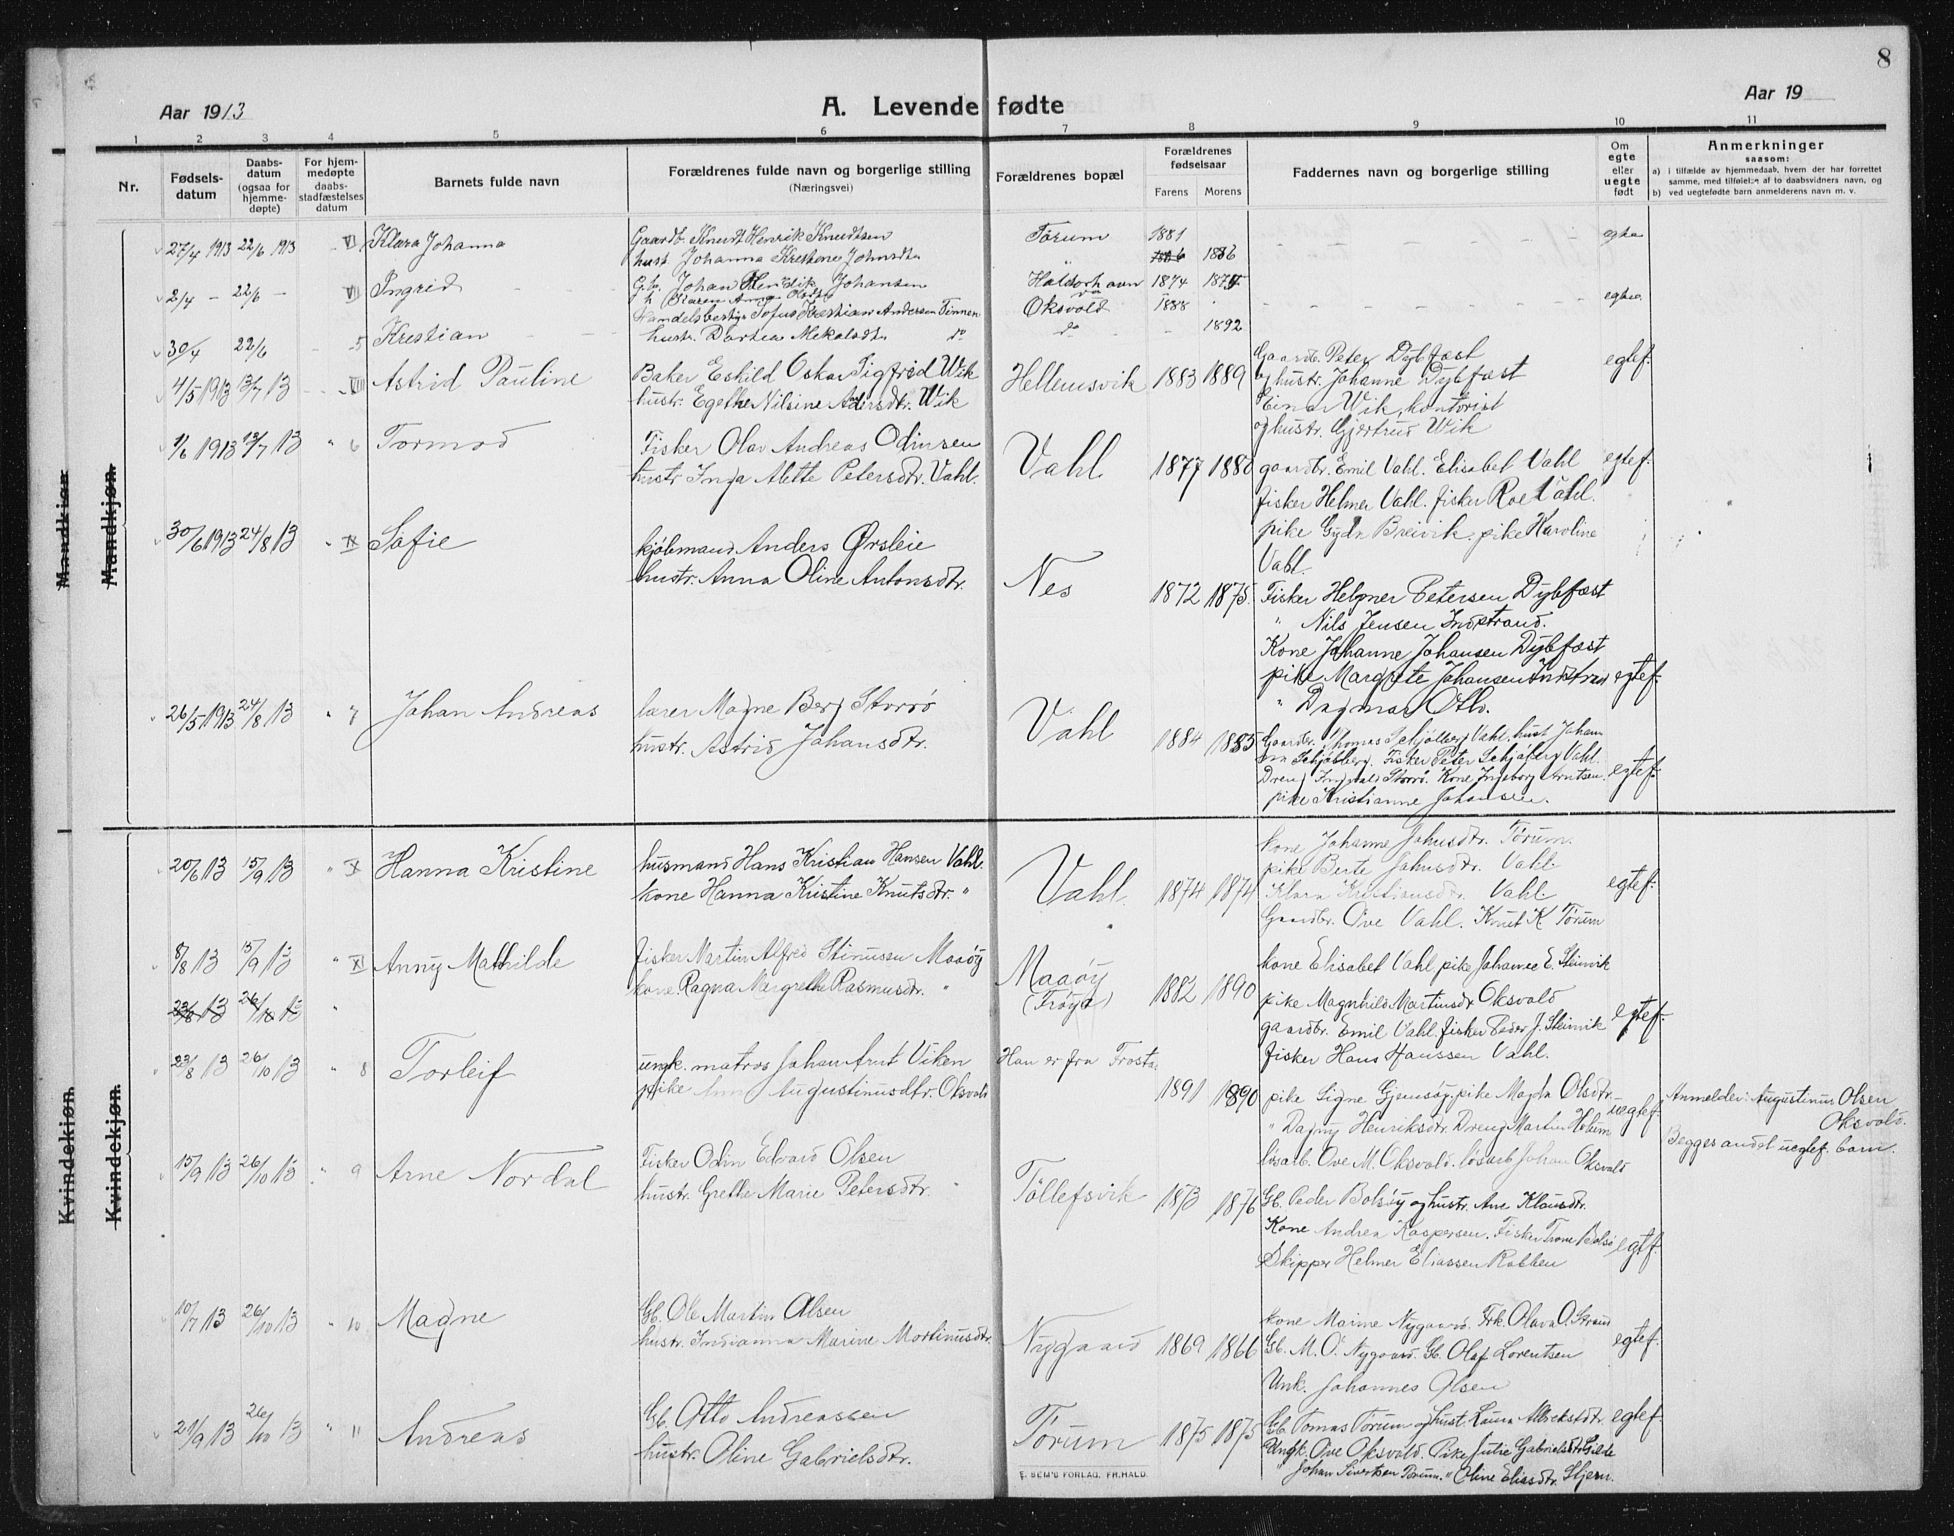 8
Aar 1913
A. Levende fødte
Aar 19
1 2 3 4 5 6 7 8 9 10 11
Nr.
Fødsels-
datum
Daabs-
datum
(ogsaa for
hjemme-
døpte)
For hjem-
medøpte
daabs-
stadfæstelses
datum
Barnets fulde navn
Forældrenes fulde navn og borgerlige stilling
(Næringsvei)
Forældrenes bopæl
Forældrenes
fødselsaar
Farens Morens
Faddernes navn og borgerlige stilling
Om
egte
eller
uegte
født
Anmerkninger
saasom:
a) i tilfælde av hjemmedaab, hvem der har forrettet
samme, med tilføielse af to daabsvidners navn, og
b) ved uegtefødte barn anmelderens navn m. v.
Mandkjøn.
Mandkjøn.
27/4 1913 22/6 1913 VI Klara Johanna
Gaardb. Knudt Henrik Knudtsen
hust. Johanna Krestine Johnsdtr
Törum 1881
1886
egte
2/4 - 22/6 - VII Ingrid
Gb. Johan Hendik Johansen
Haldorhavn 1874
Oksvold 1888
egte
30/4 22/6 5 Krestian
Handelsbestyr Tofus Krestian Andersen Finnen
hustr. Dortea Mekalsdtr do
do 1892
egtef.
4/5 1913 13/7 13 VIII Astrid Pauline
Baker Eskild Oskar Sigfred Wik
hustr. Egethe Nilsine Adersdtr. Wik
Hellemsvik 1883 1889
Gaardb. Peter Dybfæst
og hustr. Johanne Dybfæst
Einar Wik, kontorist
og hustr. Gjertrud Wik
1/6 1913 13/7 13 " 6 Tormod
Fisker Olav Andreas Odinsen
hustr Inga Alette Petersdtr. Vahl.
Vahl 1877 1880
gaardbr. Emil Vahl. Elisabet Vahl
fisker Helmer Vahl. fisker Roe Vahl.
pike Gyda Breivik, pike Karoline
Vahl.
egtef.
30/6 1913 24/8 13 " IX Sofie
kjöbmand Anders Ørsleie
hustr. Anna Oline Antonsdtr.
Nes 1872 1875.
Fisker Helmer Petersen Dybfæst
" Nils Jensen Indstrand.
Kone Johanne Johansen Dybfæst
pike Margrete Johansen Indstrand
" Dagmar Oth.
egtef.
26/5 1913 24/8 13 " 7 Johan Andreas
lærer Magne Berg Storrø
hustr. Astrid Johansdtr.
Vahl 1884 1885
Gaardbr. Thomas Schjölberg Vahl. hust Johan
na Schjölberg. Fisker Peter Schjölberg Vahl.
Dreng Ingvald Storrö. Kone Ingeborg Arntsen.
pike Kristianne Johansen.
egtef.
Kvindekjøn.
Kvindekjøn.
20/6 13 15/9 13 " X Hanna Kristine
husmand Hans Kristian Hansen Vahl.
kone Hanna Kristine Knutsdtr. "
Vahl. 1874 1874
kone Johanne Johnsdtr. Törum.
pike Berte Johnsdtr. Vahl
Klara Kristiansdtr. Vahl.
Gaardbr. Ove Vahl. Knut K Törum
egtef.
8/8 13 15/9 13 " XI Anny Mathilde
fisker Martin Alfred Stinussen Maaöy
kone. Ragna Margrethe Rasmusdtr. "
Maaöy
(Fröya) 1882 1890
kone Elisabet Vahl pike Johanne E. Steinvik
pike Magnhild Martinsdtr Oksvold
gaardbr. Emil Vahl fisker Peder J. Steinvik
fisker Hans Hanssen Vahl.
egtef.
23/8 13 26/10 13 "
23/8 13 26/10 13 " 8 Torleif
ungk. matros Johan Arnt Viken
pike Anna Augustinusdtr. Oksvold
Han er fra Frosta.
1891 1890
pike Signe Gjemsöy. pike Magda Olsdtr.
" Dagny Henriksdtr. Dreng Martin Holum
lösarb. Ove M. Oksvold. lösarb Johan Oksvold
uegtef.
Anmelder: Augustinus Olsen
Oksvold.
Begges andet uegtef. barn.
15/9 13 26/10 13 " 9 Arne Nordal
Fisker Odin Edvard Olsen
hustr. Grethe Marie Petersdtr.
Töllefsvik 1873 1876
Gb. Peder Bolsöy og hustr. Ane Klausdtr.
Kone Andrea Kaspersen. Fisker Trone Bolsö
Skipper Helmer Eliassen Rabben
egtef.
10/7 13 26/10 13 " 10 Magne
Gb. Ole Martin Olsen
hustr. Indianna Marine Mortinusdtr.
Nygaard 1869 1866
kone Marine Nygaard. Frk. Olava O. Strand
Gb. M. O. Nygaard. Gb. Olaf Lorentsen
Unk. Johannes Olsen
egtef.
21/9 13 26/10 13 " 11 Andreas
Gb. Otto Andreassen
hustr. Oline Gabrielsdtr.
Törum 1875 1875
Gb. Tomas Törum og hust. Laura Albrektsdtr.
Ungk. Ove Oksvold. Pike Jutie Gabrielsdtr Gilde
" Johan Sivertsen Törum. " Oline Eliasdtr. Stjern.
egtef.
F. BEM'S FORLAG, FR.HALD.